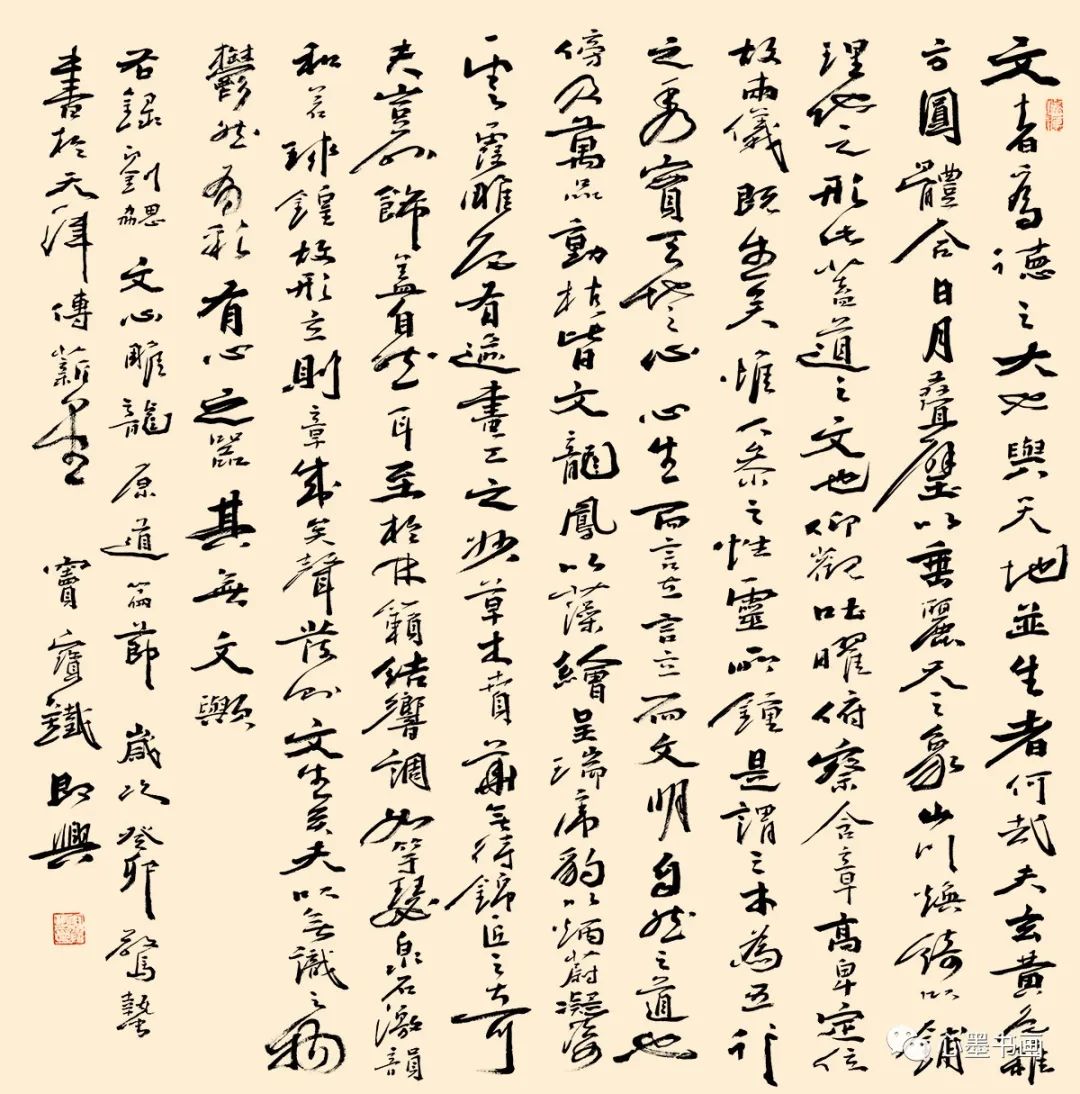 文者為德之大也與天地並生者何哉夫玄黃色雜
方圓體合日月疊璧以垂麗天之象山川煥綺以鋪
理地之形此蓋道之文也仰觀吐曜俯察含章高卑定位
故兩儀既生矣惟人參之性靈所鍾是謂三才為五行
之秀實天地之心心生而言立言立而文明自然之道也
傍及萬品動植皆文龍鳳以藻繪呈瑞虎豹以炳蔚凝姿
雲霞雕色有逾畫工之妙草木賁華無待錦匠之奇
夫豈外飾蓋自然耳至於林籟結響調如竽瑟泉石激韻
和若球鍠故形立則章成矣聲發則文生矣夫以無識之物
鬱然有彩有心之器其無文歟
右錄劉勰文心雕龍原道篇節 歲次癸卯驚蟄
書於天津傳薪堂 竇寶鐵即興
墨书画